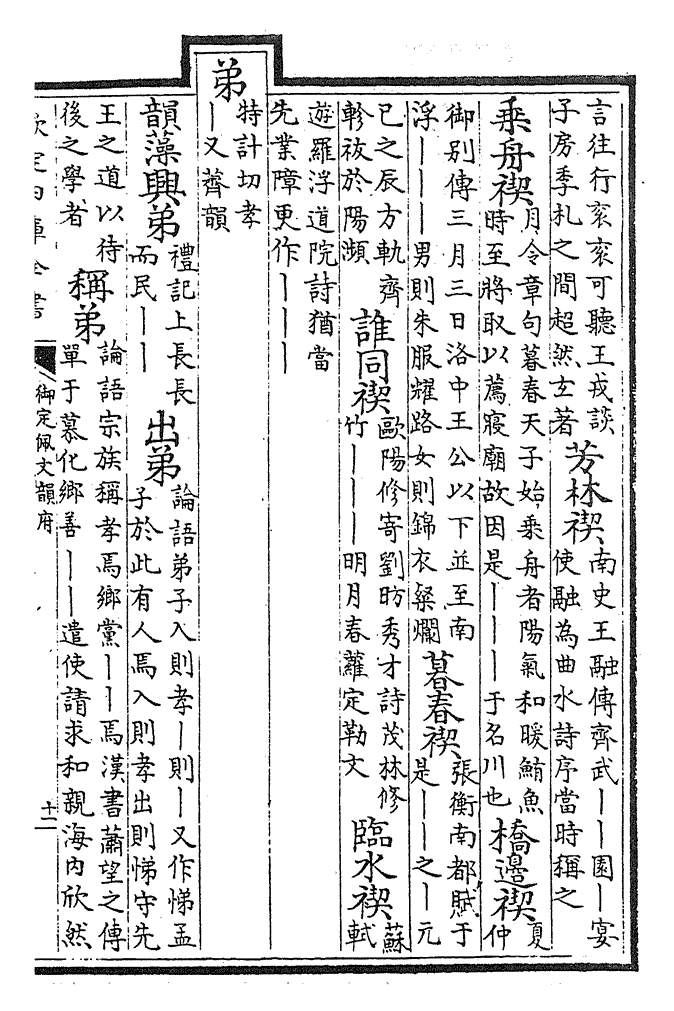 言往行衮衮可聽王戎談
子房季札之間超然玄著
芳林禊
南史王融傳齊武丨丨園丨宴
使融為曲水詩序當時稱之
乘舟禊
月令章句暮春天子始乘舟者陽氣和暖鮪魚
時至將取以薦寢廟故因是丨丨丨于名川也
橋邊禊
夏
仲
御别傳三月三日洛中王公以下並至南
浮丨丨丨男則朱服耀路女則錦衣粲爛
暮春禊
張衡南都賦于
是丨丨之丨元
巳之辰方軌齊
軫祓於陽瀕
誰同禊
歐陽修寄劉昉秀才詩茂林修
竹丨丨丨明月春蘿定勒文
臨水禊
蘇
軾
遊羅浮道院詩猶當
先業障更作丨丨丨
弟
特計切孝
丨又薺韻
韻藻興弟
禮記上長長
而民丨丨
出弟
論語弟子入則孝丨則丨又作悌孟
子於此有人焉入則孝出則悌守先
王之道以待
後之學者
稱弟
論語宗族稱孝焉鄉黨丨丨焉漢書蕭望之傳
單于慕化鄉善丨丨遣使請求和親海内欣然
欽定四庫全書
御定佩文韻府
十二